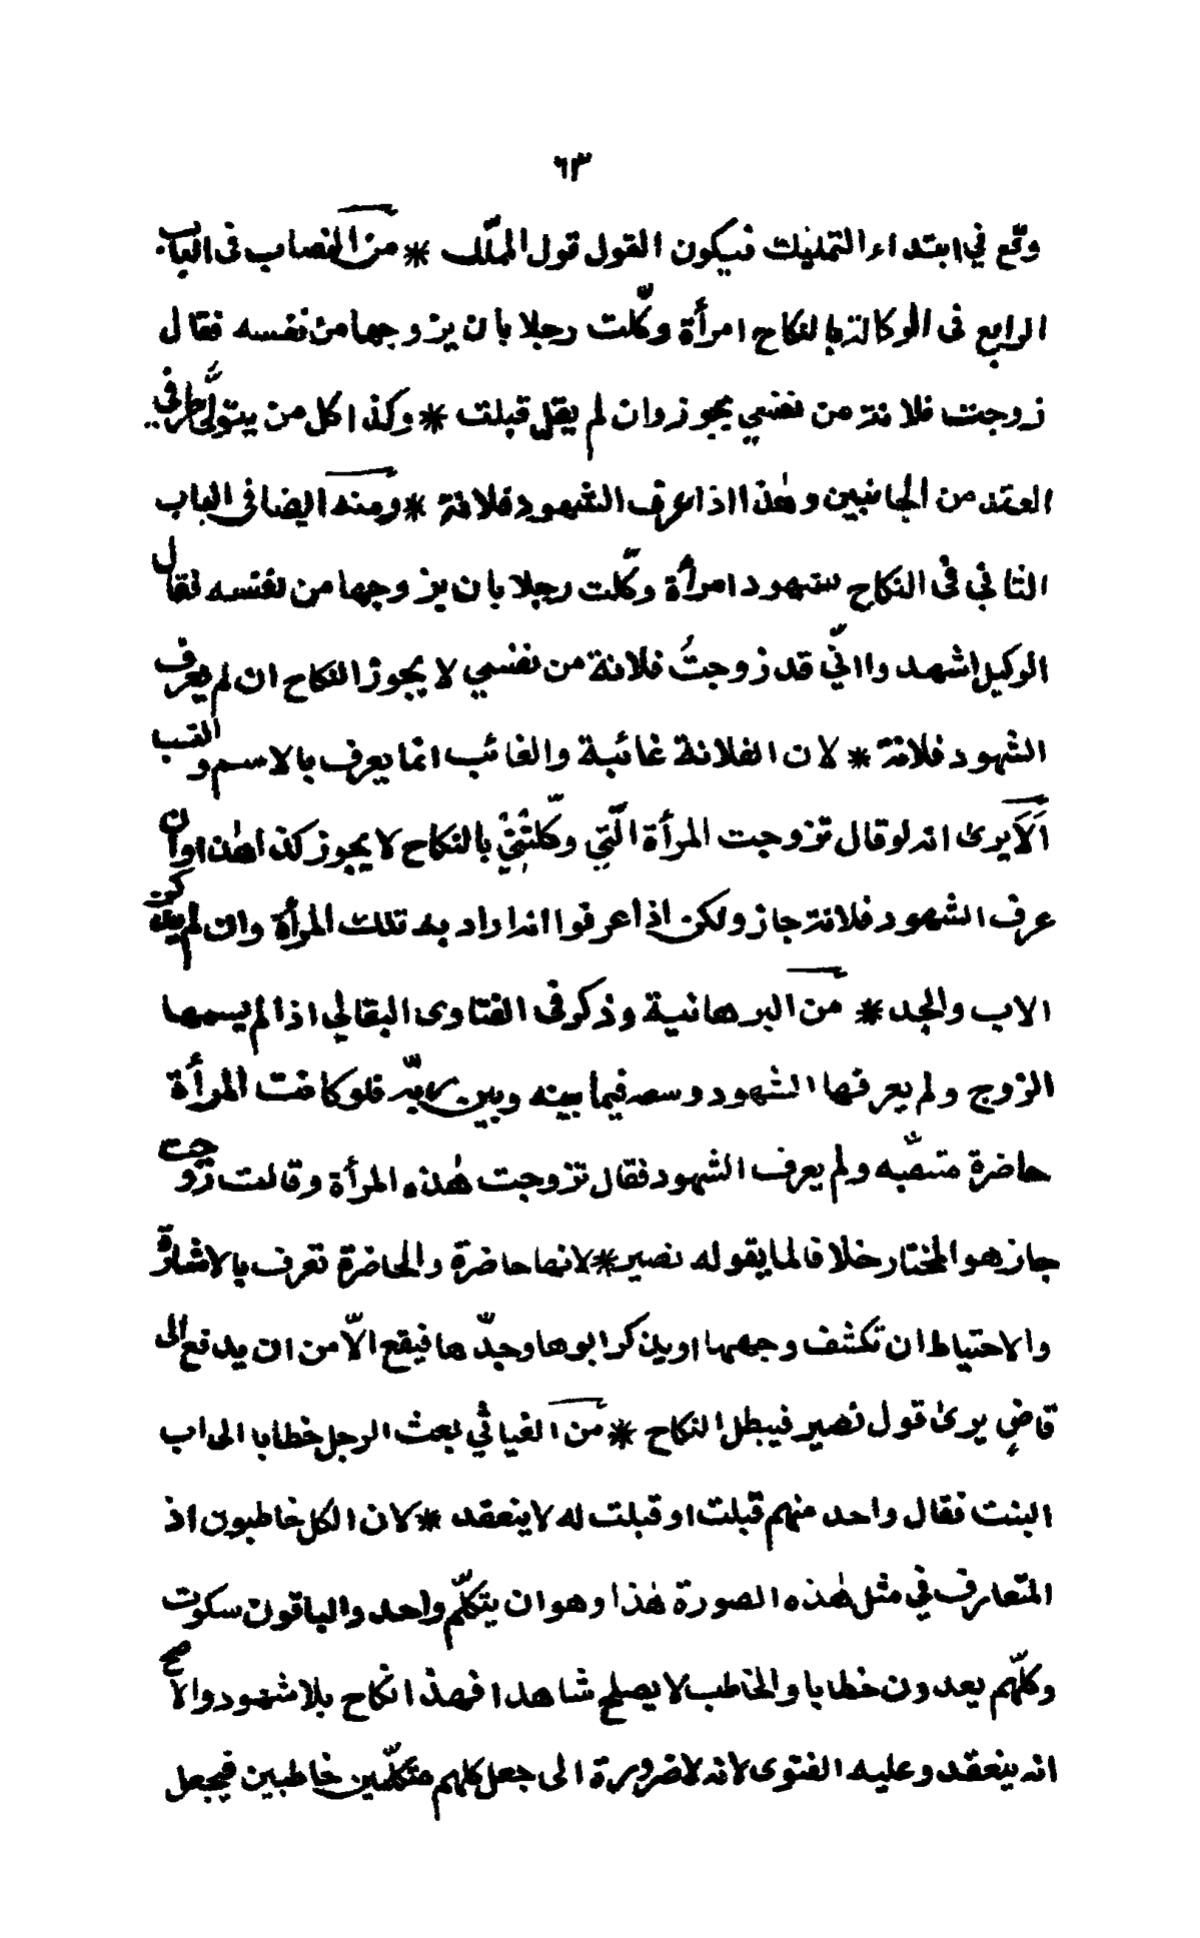 ٦٣
وقع في ابتداء التمليك فيكون القول قول المملّك * من النصاب فى الباب
الرابع فى الوكالة بالنكاح امرأة وكّلت رجلا بان يزوجها من نفسه فقال
زوجت فلانة من نفسي يجوز وان لم يقل قبلت * وكذا كل من يتولّى طرفي
العقد من الجانبين وهٰذا اذا عرف الشهود فلانة * ومنه ايضا فى الباب
الثاني فى النكاح بشهود امرأة وكّلت رجلا بان يزوجها من نفسه فقال
الوكيل اشهدوا انّي قد زوجتُ فلانة من نفسي لا يجوز النكاح ان لم يعرف
الشهود فلانة * لان الفلانة غائبة والغائب انما يعرف بالاسم والنسب
اَلَا يرىٰ انه لو قال تزوجت المرأة الّتي وكّلتْنِيْ بالنكاح لا يجوز كذا هٰذا وان
عرف الشهود فلانة جاز ولكن اذا عرفوا انه اراد به تلك المرأة وان لم يذكر
الاب والجد * من البرهانية وذكر فى الفتاوى البقالي اذا لم يسمها
الزوج ولم يعرفها الشهود وسعه فيما بينه وبين ربّه فلو كانت المرأة
حاضرة متنقّبه ولم يعرف الشهود فقال تزوجت هٰذه المرأة وقالت زوجت
جاز هو المختار خلافا لما يقوله نصير * لانها حاضرة والحاضرة تعرف بالاشارة
والاحتياط ان تكشف وجهها او يذكر ابوها وجدّها فيقع الامن ان يدفع الى
قاضٍ يرىٰ قول نصير فيبطل النكاح * من الغياثي بعث الرجل خطابا الى اب
البنت فقال واحد منهم قبلت او قبلت له لا ينعقد * لان الكل خاطبون اذ
المتعارف في مثل هٰذه الصورة هٰذا وهو ان يتكلّم واحد والباقون سكوت
وكلّهم يعدون خطابا والخاطب لا يصلح شاهدا فهذا نكاح بلا شهود والاصح
انه ينعقد وعليه الفتوى لانه لا ضرورة الى جعل كلهم متكلّمين خاطبين فيجعل